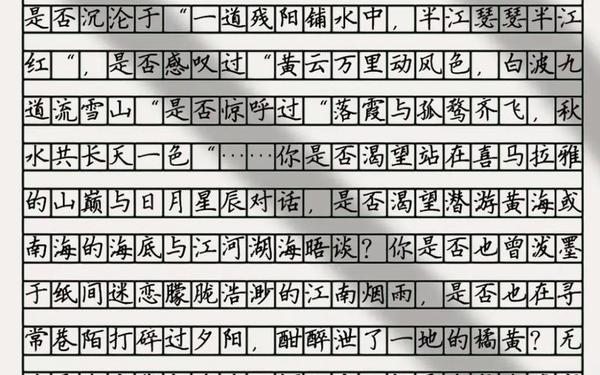 是否沉沦于“一道残阳铺水中，半江瑟瑟半江
红“，是否感叹过“黄云万里动风色，白波九
道流雪山“是否惊呼过“落霞与孤鹜齐飞，秋
水共长天一色“……你是否渴望站在喜马拉雅
的山巅与日月星辰对话，是否渴望潜游黄海或
南海的海底与江河湖海晤谈？你是否也曾泼墨
于纸间迷恋朦胧浩渺的江南烟雨，是否也在寻
常巷陌打碎过夕阳，酣醉泄了一地的橘黄？无